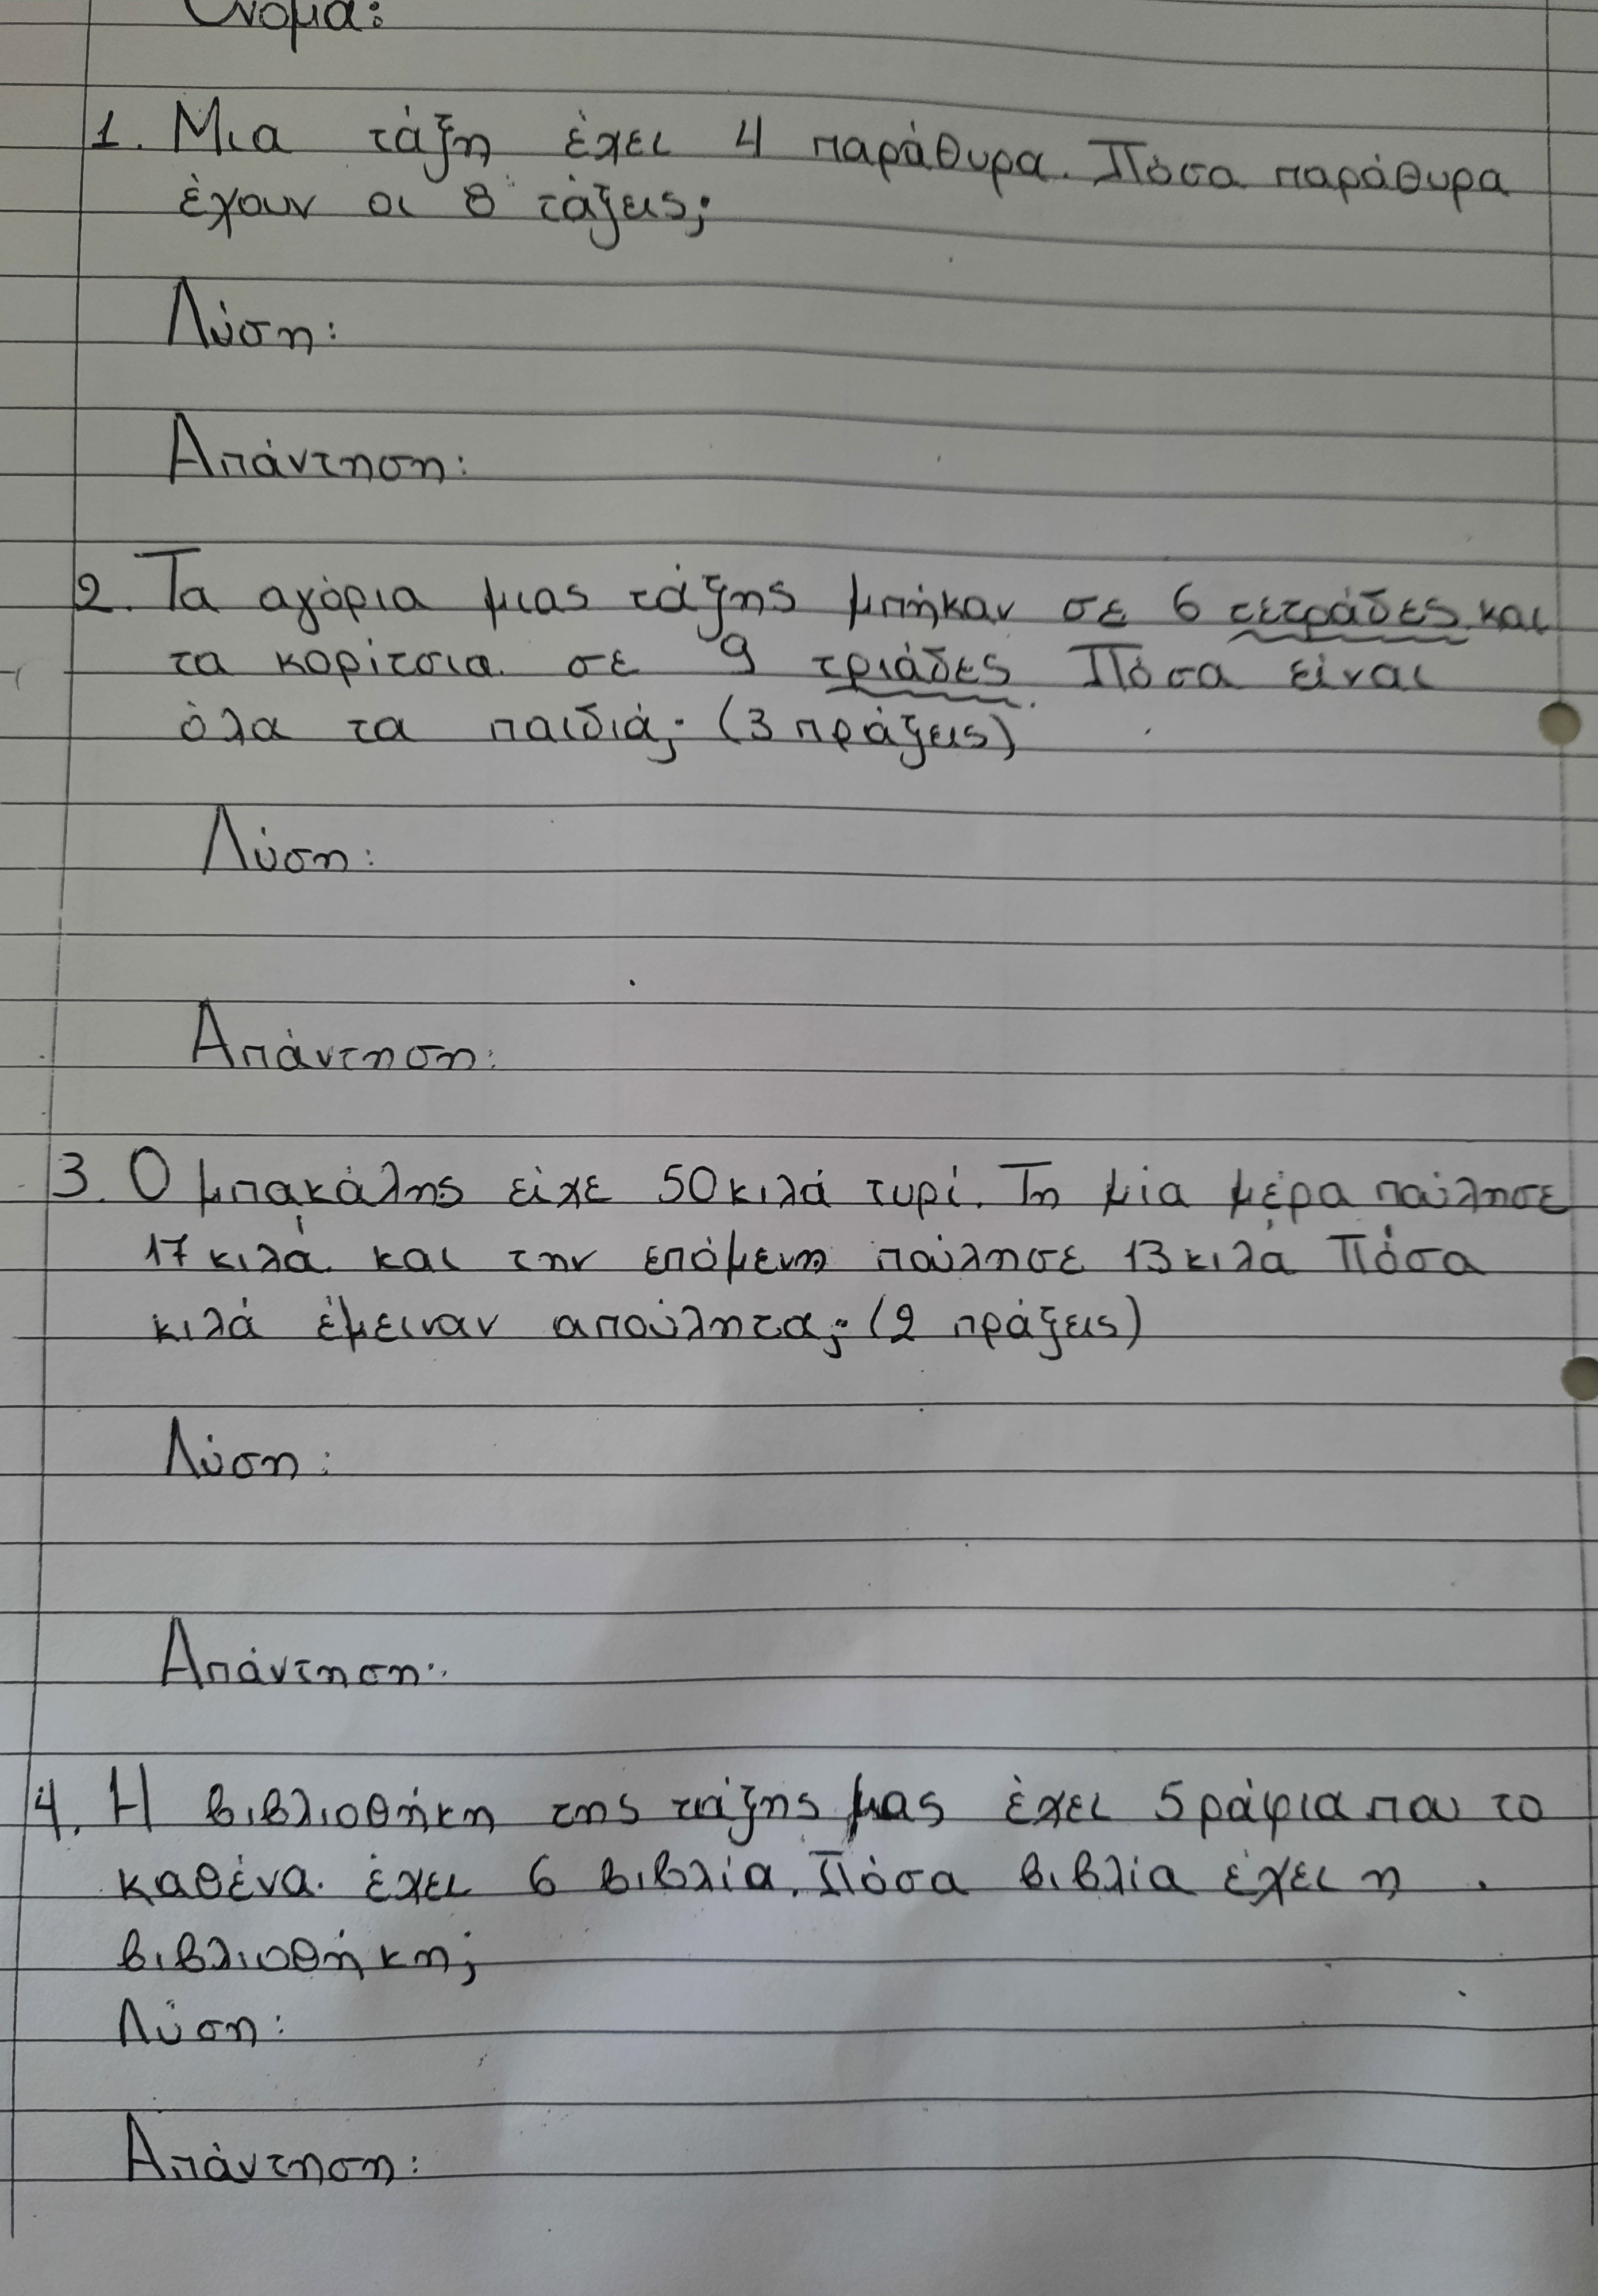 Όνομα:
1. Μια τάξη έχει 4 παράθυρα. Πόσα παράθυρα
έχουν οι 8 τάξεις;
Λύση:
Απάντηση:
2. Τα αγόρια μιας τάξης μπήκαν σε 6 τετράδες και
τα κορίτσια σε 9 τριάδες. Πόσα είναι
όλα τα παιδιά; (3 πράξεις)
Λύση:
Απάντηση:
3. Ο μπακάλης είχε 50 κιλά τυρί. Τη μία μέρα πούλησε
17 κιλά και την επόμενη πούλησε 13 κιλά Πόσα
κιλά έμειναν απούλητα; (2 πράξεις)
Λύση:
Απάντηση:
4. Η βιβλιοθήκη της τάξης μας έχει 5 ράφια που το
καθένα έχει 6 βιβλία. Πόσα βιβλία έχει η
βιβλιοθήκη;
Λύση:
Απάντηση: